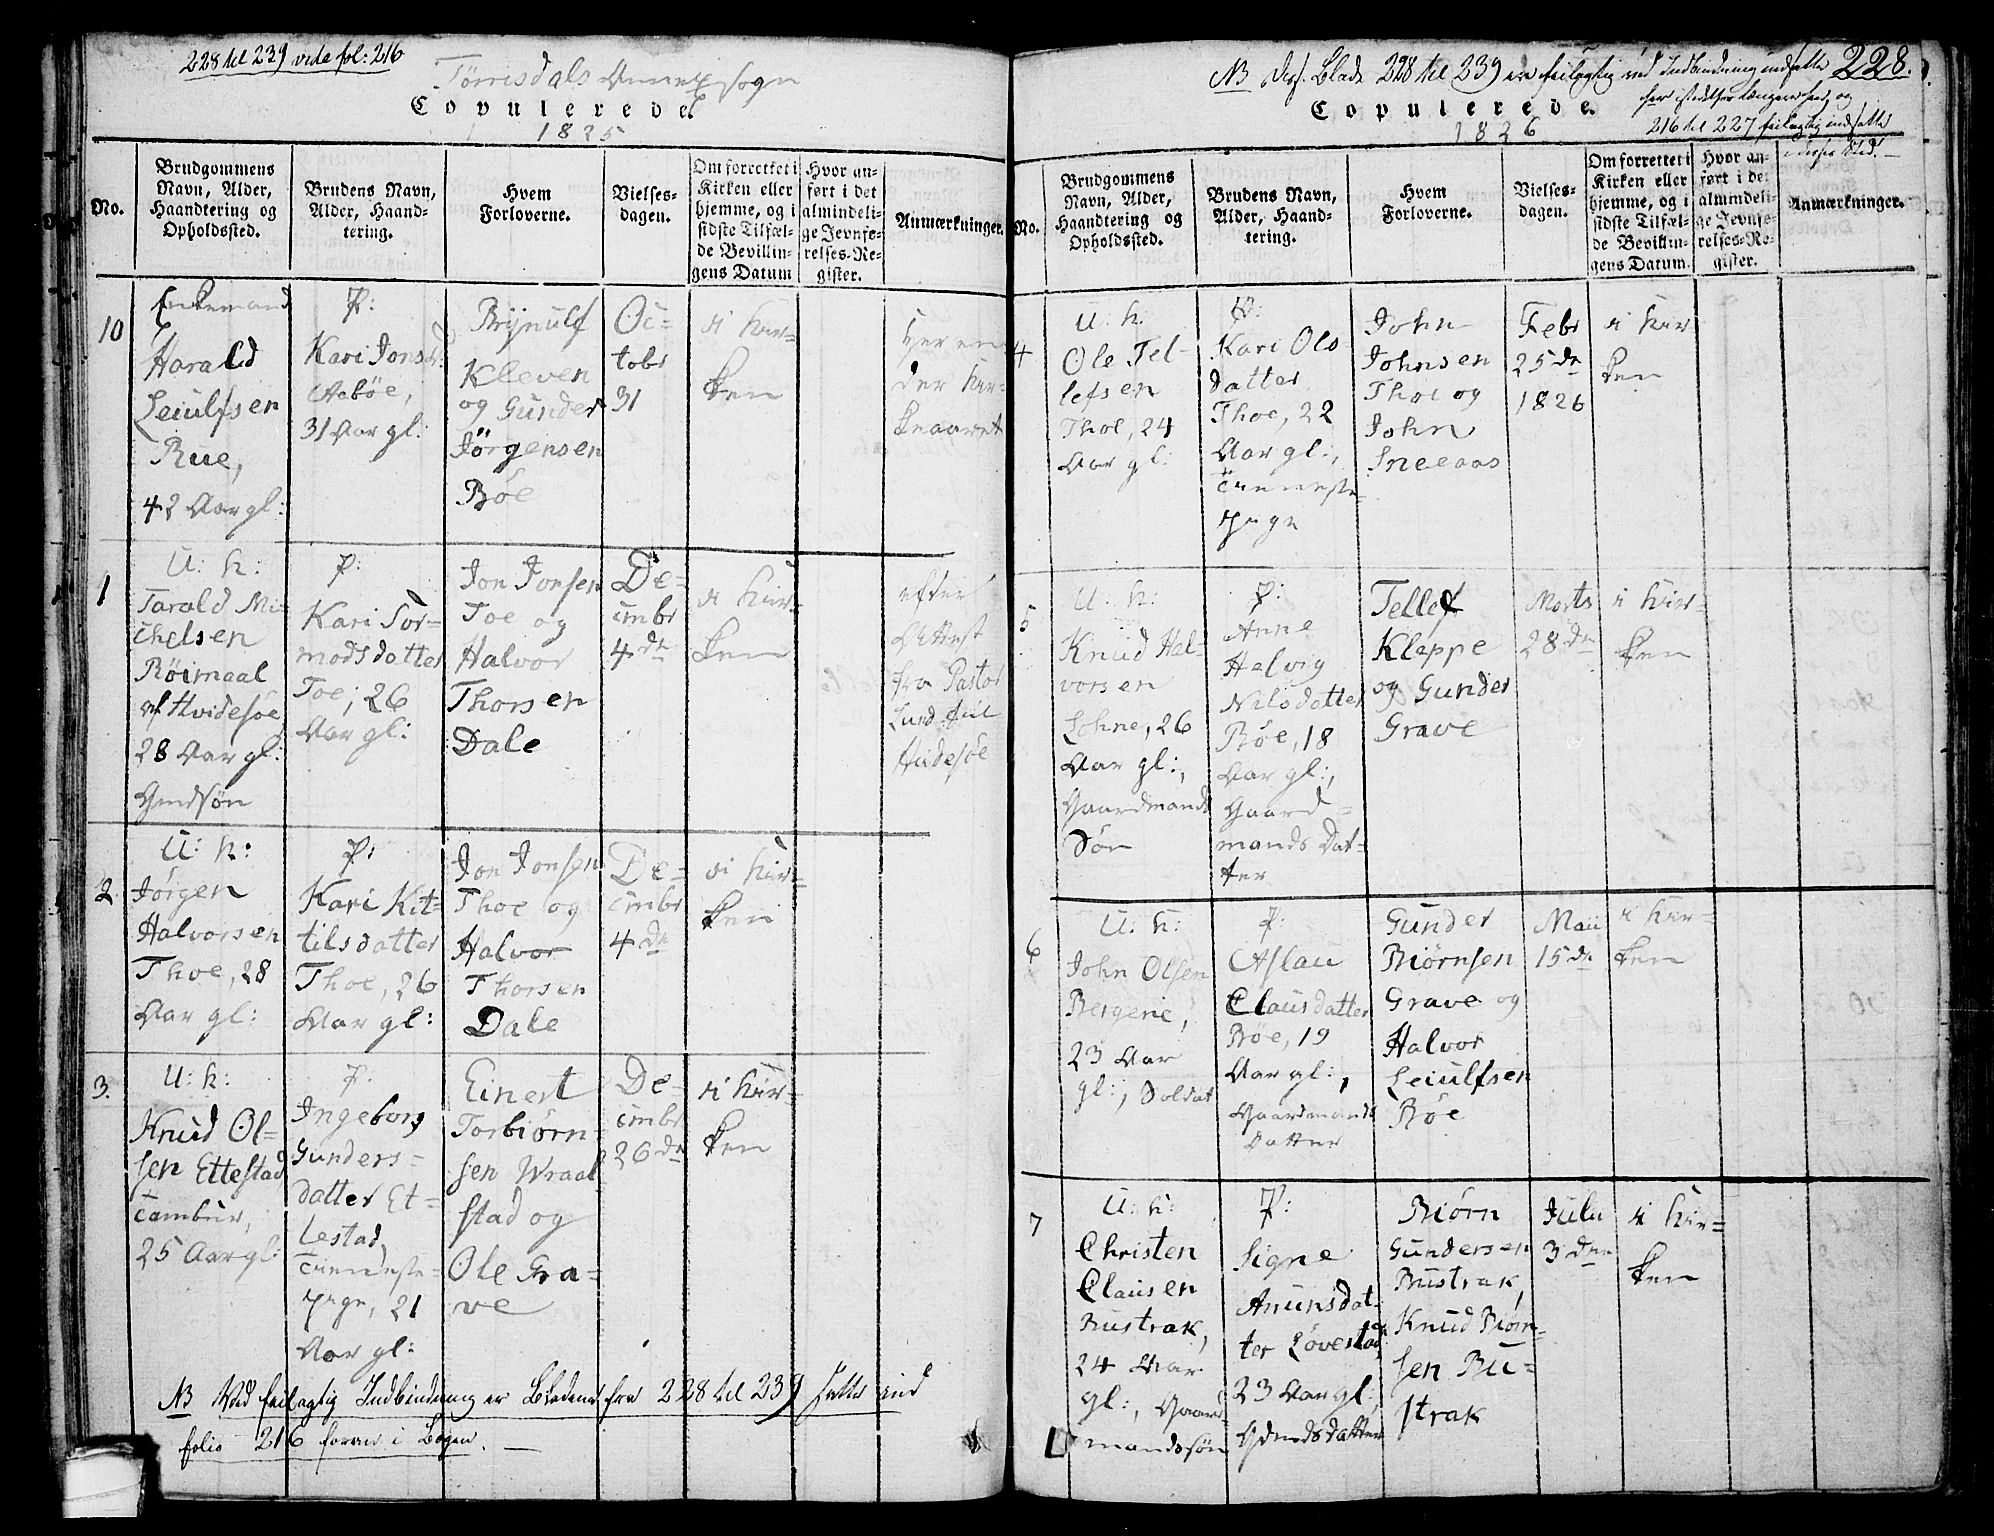 228 til 239 vide fol: 216
Tørrisdals Annex sogn
Copulerede
1825
No.
Brudgommens Navn, Alder, Haandtering og Opholdssted.
Brudens Navn, Alder, Haandtering.
Hvem Forloverne.
Vielsesdagen.
Om forrettet i Kirken eller hjemme, og i sidste Tilfælde Bevillingens Datum
Hvor anført i det almindelige Jevnførelses-Register.
Anmærkninger.
10
Enkemand
Harald
Leiulfsen
Rue,
42 Aar gl:
P:
Kari Jonsd:
Aabøe,
31 Aar gl:
Bÿnulf
Kleven
og Gunder
Jørgensen
Bøe
Oc=
tobr
31
i Kir=
ken
her en
der Kir=
keaaret
1
U: K:
Tarald Mi=
chelsen
Røimaal
af Hvidesøe
28 Aar gl:
Gmdsøn
P:
Kari Tor=
modsdatter
Toe, 26
Aar gl:
Jon Jonsen
Toe og
Halvor
Thorsen
Dale
De=
cmbr
4de
i Kir=
ken
efter
Attest
fra Pastor
Lund til
Hvidesøe
2.
U: K:
Jørgen
Halvorsen
Thoe, 28
Aar gl:
P:
Kari Kit=
tilsdatter
Thoe, 26
Aar gl:
Jon Jonsen
Thoe og
Halvor
Thorsen
Dale
De=
cmbr
4de
i Kir=
ken
3.
U: K:
Knud Ol=
sen Ettestad
Tambur,
25 Aar gl:
P:
Ingeborg
Gunders=
datter Et=
testad,
Tieneste=
Pige, 21
Aar gl:
Einert
Torbiørn=
sen Wraal
stad og
Ole Gra=
ve
De=
cmbr
26de
i Kir=
ken
NB Ved feilagtig Indbinding er Bladene fra 228 til 239 satte ind
folio 216 foran i Bogen. —
NB Disf. Blade 228 til 239 ere feilagtig ved Indbinding indsatte
228.
her istedetfor længere hen, og
216 til 227 feilagtig indsatte
i disses Sted. —
Copulerede.
1826
No.
Brudgommens Navn, Alder, Haandtering og Opholdssted.
Brudens Navn, Alder, Haandtering.
Hvem Forloverne.
Vielsesdagen.
Om forrettet i Kirken eller hjemme, og i sidste Tilfælde Bevillingens Datum.
Hvor anført i det almindelige Jevnførelses-Register.
Anmærkninger.
4
U: K:
Ole Tel=
lefsen
Thoe, 24
Aar gl:
P:
Kari Ols
datter
Thoe, 22
Aar gl:,
Tieneste=
Pige
John
Johnsen
Thoe og
John
Sneeaas
Febr
25de
1826
i Kir
ken
5
U: K:
Knud Hal=
vorsen
Lohne, 26
Aar gl:,
Gaardmands
Søn
P:
Anne
Helvig
Nilsdatter
Bøe, 18
Aar gl:,
Gaard=
mands Dat=
ter
Tellef
Kleppe
og Gunder
Grave
Marts
28de
i Kir=
ken
6
U: K:
John Olsen
Bergene,
23 Aar
gl:, Soldat
P:
Aslau
Clausdatter
Bøe, 19
Aar gl:,
Gaardmands
Datter
Gunder
Biørnsen
Grave og
Halvor
Leiulfsen
Bøe
Maii
15de
i Kir=
ken
7
U: K:
Christen
Clausen
Bustrak,
24 Aar
gl:, Gaard
mandssøn
P:
Signe
Anunsdat=
ter Løvestad,
23 Aar gl:,
Gdmdsdatter
Biørn
Gundersen
Bustrak,
Knud Biørn=
sen Bu=
strak
Julii
3die
i Kir=
ken